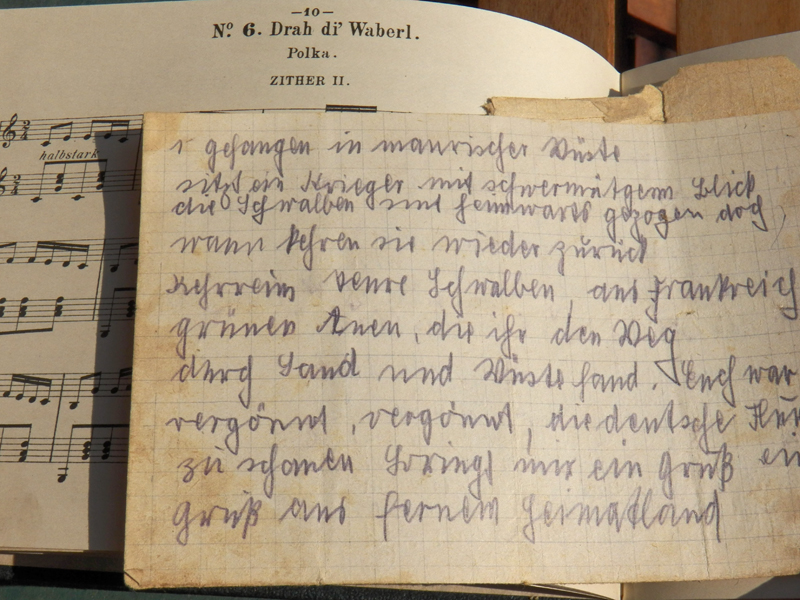 —10—
Nº 6. Drah di' Waberl.
Polka.
ZITHER II.
halbstark
1 gefangen in maurischer Wüste
sitzt ein Krieger mit schwermütgem Blick
die Schwalben sind heimwärts gezogen doch
wann kehren sie wieder zurück
Kehrreim Schwalben, aus Frankreich
grünen Auen, die ihr den Weg
durch Sand und Wüste fand. Euch war
vergönnt, vergönnt, die deutsche Flur
zu schauen Bringt mir ein Gruß ein
Gruß aus fernem Heimatland